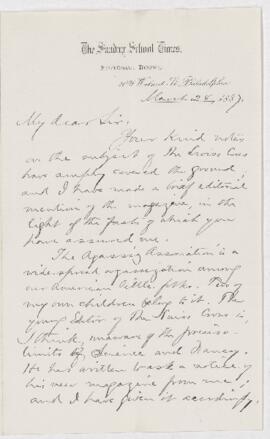 The Sunday School Times,
Editorial Rooms,
Walnut St. Philadelphia
March 28, 1887.
My dear Sir:
Your kind notes
on the subject of The Swiss Cross
have amply covered the ground,
and I have made a brief editorial
mention of the magazine, in the
light of the facts of which you
have assured me.
The Agassiz Association is a
wide-spread organization among
our American little folks. Two of
my own children belong to it. The
young Editor of The Swiss Cross is,
I think, unaware of the precise
limits of Science and Fancy.
He has written to ask a notice of
his new magazine from me;
and I have given it accordingly,